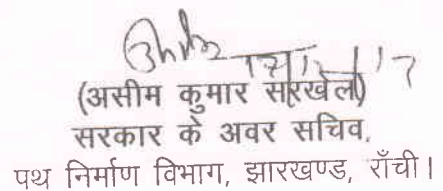 (असीम कुमार सरखेल)
सरकार के अवर सचिव,
पथ निर्माण विभाग, झारखण्ड, राँची।